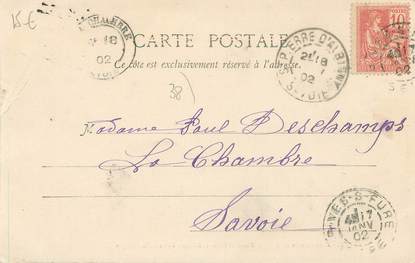 15 €
LA CHAMBRE
18
02
SAVOIE
CARTE POSTALE
Ce côté est exclusivement réservé à l'adresse.
ST PIERRE D'ALBIGNY
21 18
02
SAVOIE
10
38
Madame Paul Deschamps
La Chambre
Savoie
RIVES-S-FURE
17
JANV
02